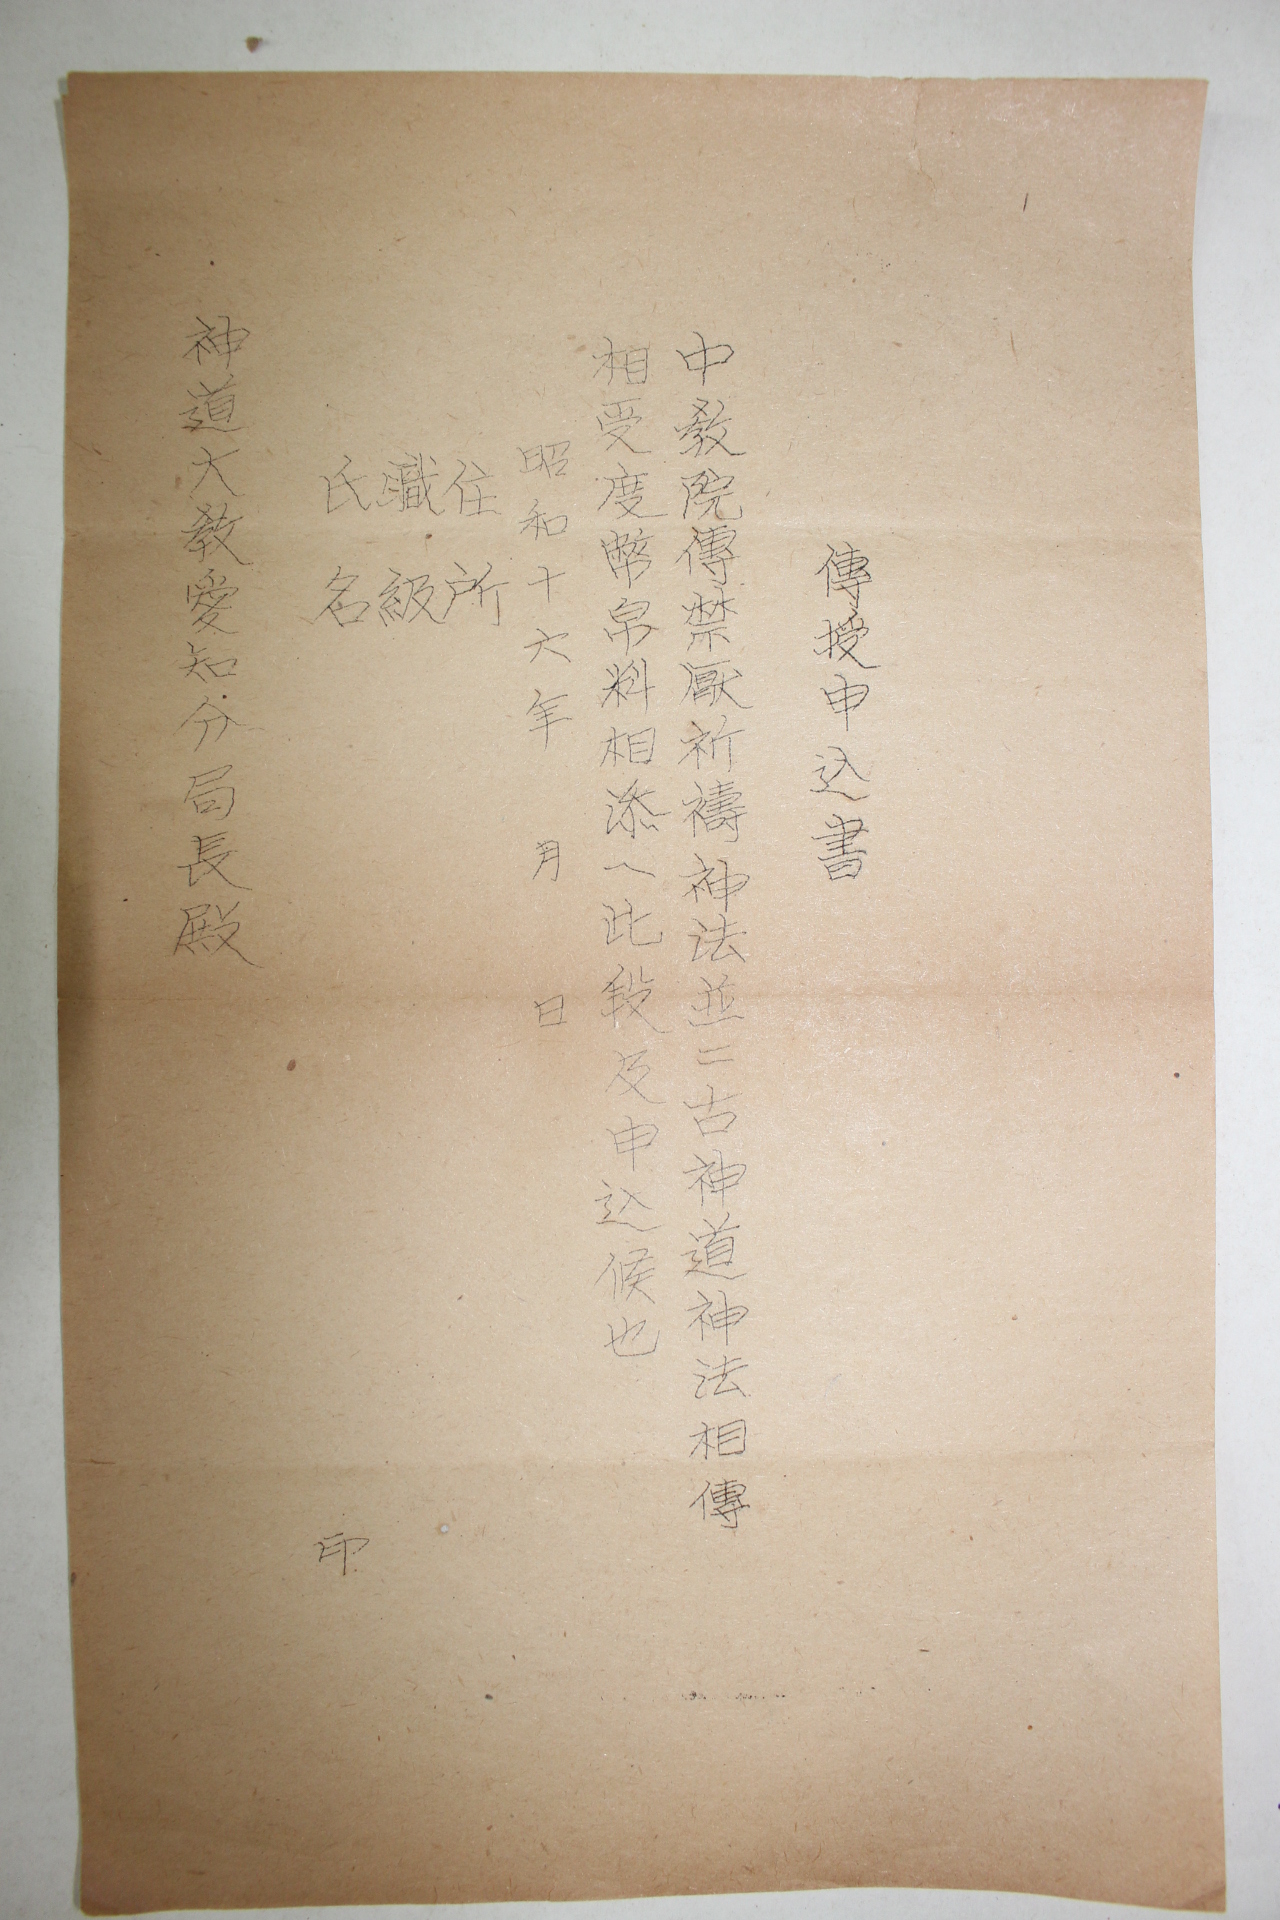 傳授申込書
中教院傳禁厭祈禱神法並ニ古神道神法相傳
相受度幣帛料相添ヘ此段及申込候也
昭和十六年　月　日
住所
職級
氏名　印
神道大教愛知分局長殿